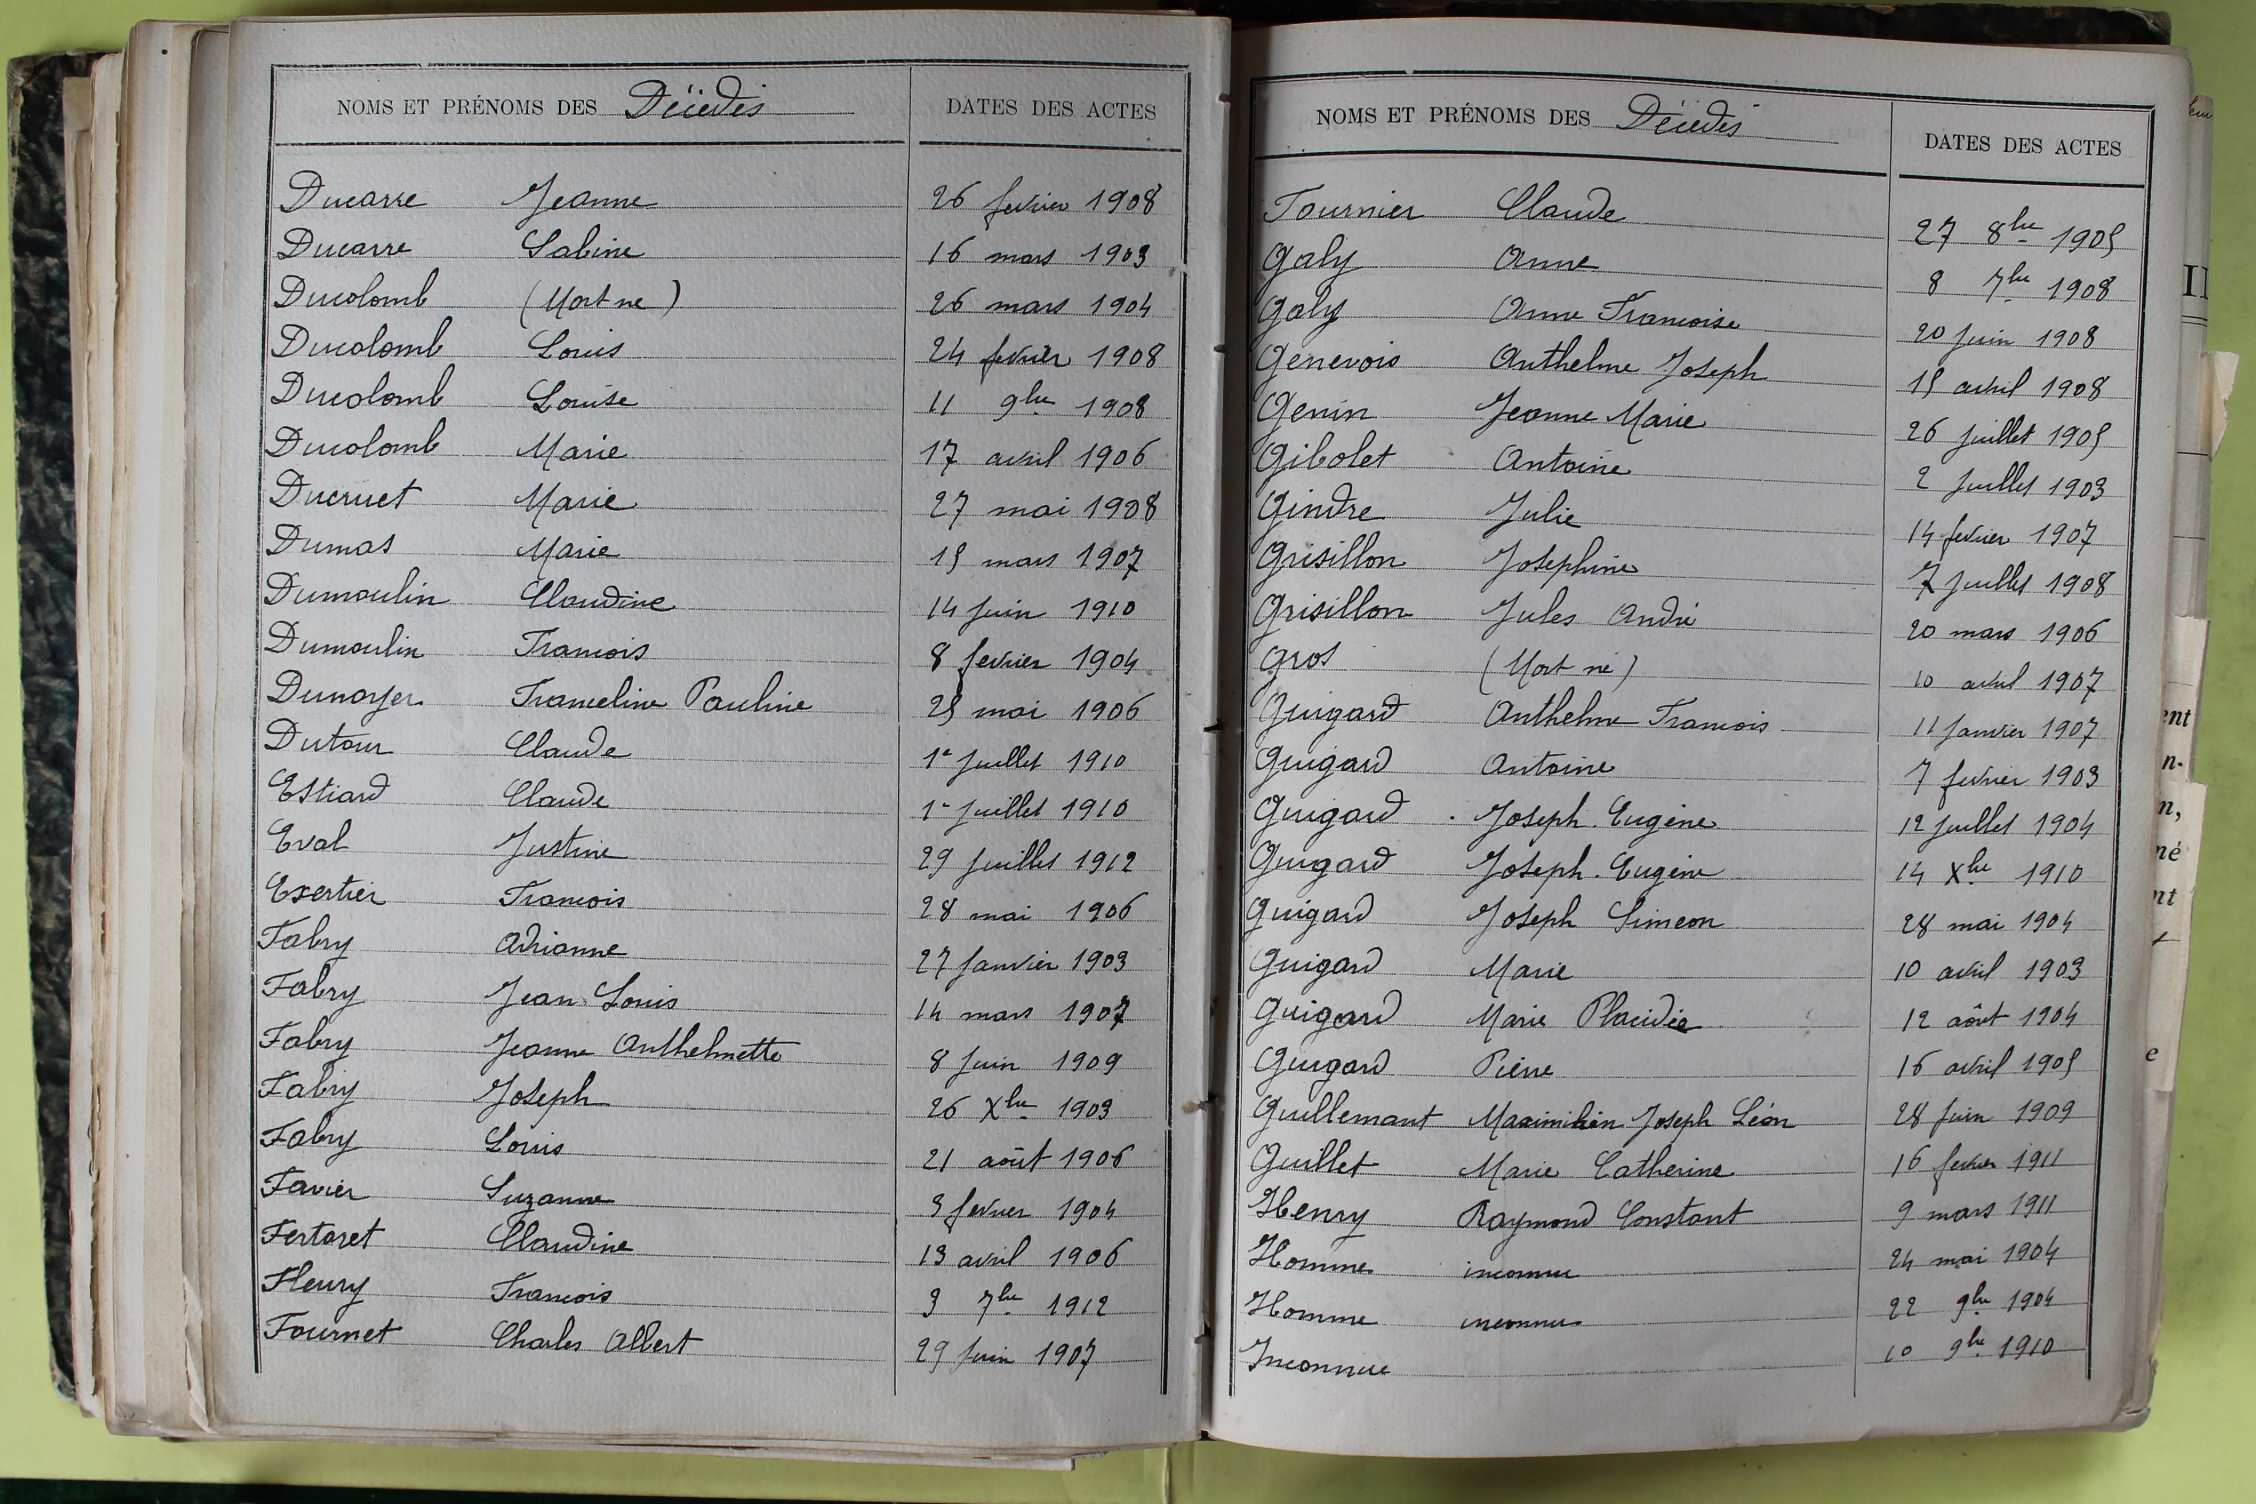 NOMS ET PRÉNOMS DES Décédés DATES DES ACTES
Ducarre Jeanne 26 fevrier 1908
Ducarre Sabine 16 mars 1903
Ducolomb (Mort né) 26 mars 1904
Ducolomb Louis 24 fevrier 1908
Ducolomb Louise 11 9bre 1908
Ducolomb Marie 17 avril 1906
Ducruet Marie 27 mai 1908
Dumas Marie 15 mars 1907
Dumoulin Claudine 14 Juin 1910
Dumoulin Francois 8 fevrier 1904
Dunoyer Franceline Pauline 25 mai 1906
Dutour Claude 1e Juillet 1910
Estiard Claude 1e Juillet 1910
Eval Justine 29 Juillet 1912
Exertier Francois 28 mai 1906
Fabry Adrianne 27 Janvier 1903
Fabry Jean Louis 14 mars 1907
Fabry Jeanne Anthelmette 8 Juin 1909
Fabry Joseph 26 Xbre 1903
Fabry Louis 21 août 1906
Favier Suzanne 3 fevrier 1904
Fertoret Claudine 13 avril 1906
Fleury Francois 3 7bre 1912
Fournet Charles Albert 29 Juin 1907
NOMS ET PRÉNOMS DES Décédés DATES DES ACTES
Fournier Claude 27 8bre 1905
Galy Anne 8 7bre 1908
Galy Anne Francoise 20 Juin 1908
Genevois Anthelme Joseph 15 avril 1908
Genin Jeanne Marie 26 Juillet 1905
Gibolet Antoine 2 Juillet 1903
Gindre Julie 14 fevrier 1907
Grisillon Josephine 7 Juillet 1908
Grisillon Jules André 20 mars 1906
Gros (Mort né) 10 avril 1907
Guigard Anthelme Francois 11 Janvier 1907
Guigard Antoine 7 fevrier 1903
Guigard Joseph Eugène 12 Juillet 1904
Guigard Joseph Eugène 14 Xbre 1910
Guigard Joseph Simeon 28 mai 1904
Guigard Marie 10 avril 1903
Guigard Marie Placidie 12 aôut 1904
Guigard Pierre 16 avril 1905
Guillemant Maximilien Joseph Léon 28 Juin 1909
Guillet Marie Catherine 16 fevrier 1911
Henry Raymond Constant 9 mars 1911
Homme inconnu 24 mai 1904
Homme inconnu 22 9bre 1904
Inconnue 10 9bre 1910
ent
n-
n,
né
nt
e